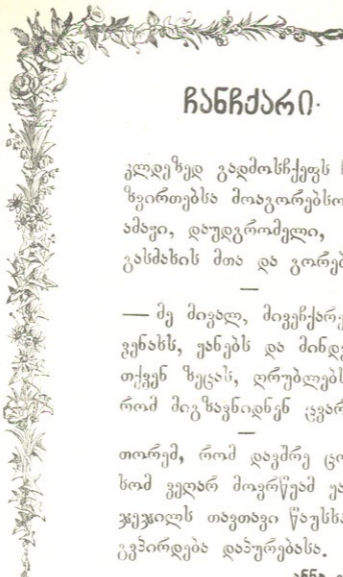 ჩანჩქარი.
კლდეზედ გადმოსჩქეფს
ზვირთებსა მოაგორებსო
ამაყი, დაუდგრომელი,
გასძახის მთა და გორებ
— მე მივალ, მივეჩქარე
ვენახს, ყანებს და მინდვ
თქვენ ზეცას, ღრუბლებს
რომ მიგზავნიდნენ ცვარ
თორემ, რომ დავშრე ცო
ხომ ვეღარ მოვრწყამ ყა
ჯეჯილს თავთავი წაუხხ
გვპირდება დაპურებასა.